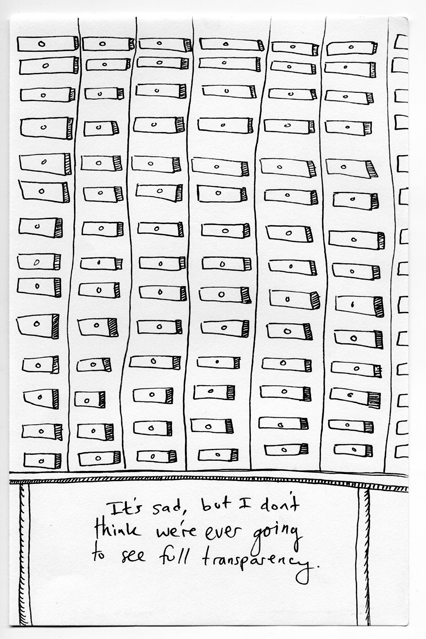 It's sad, but I don't
think we're ever going
to see full transparency.